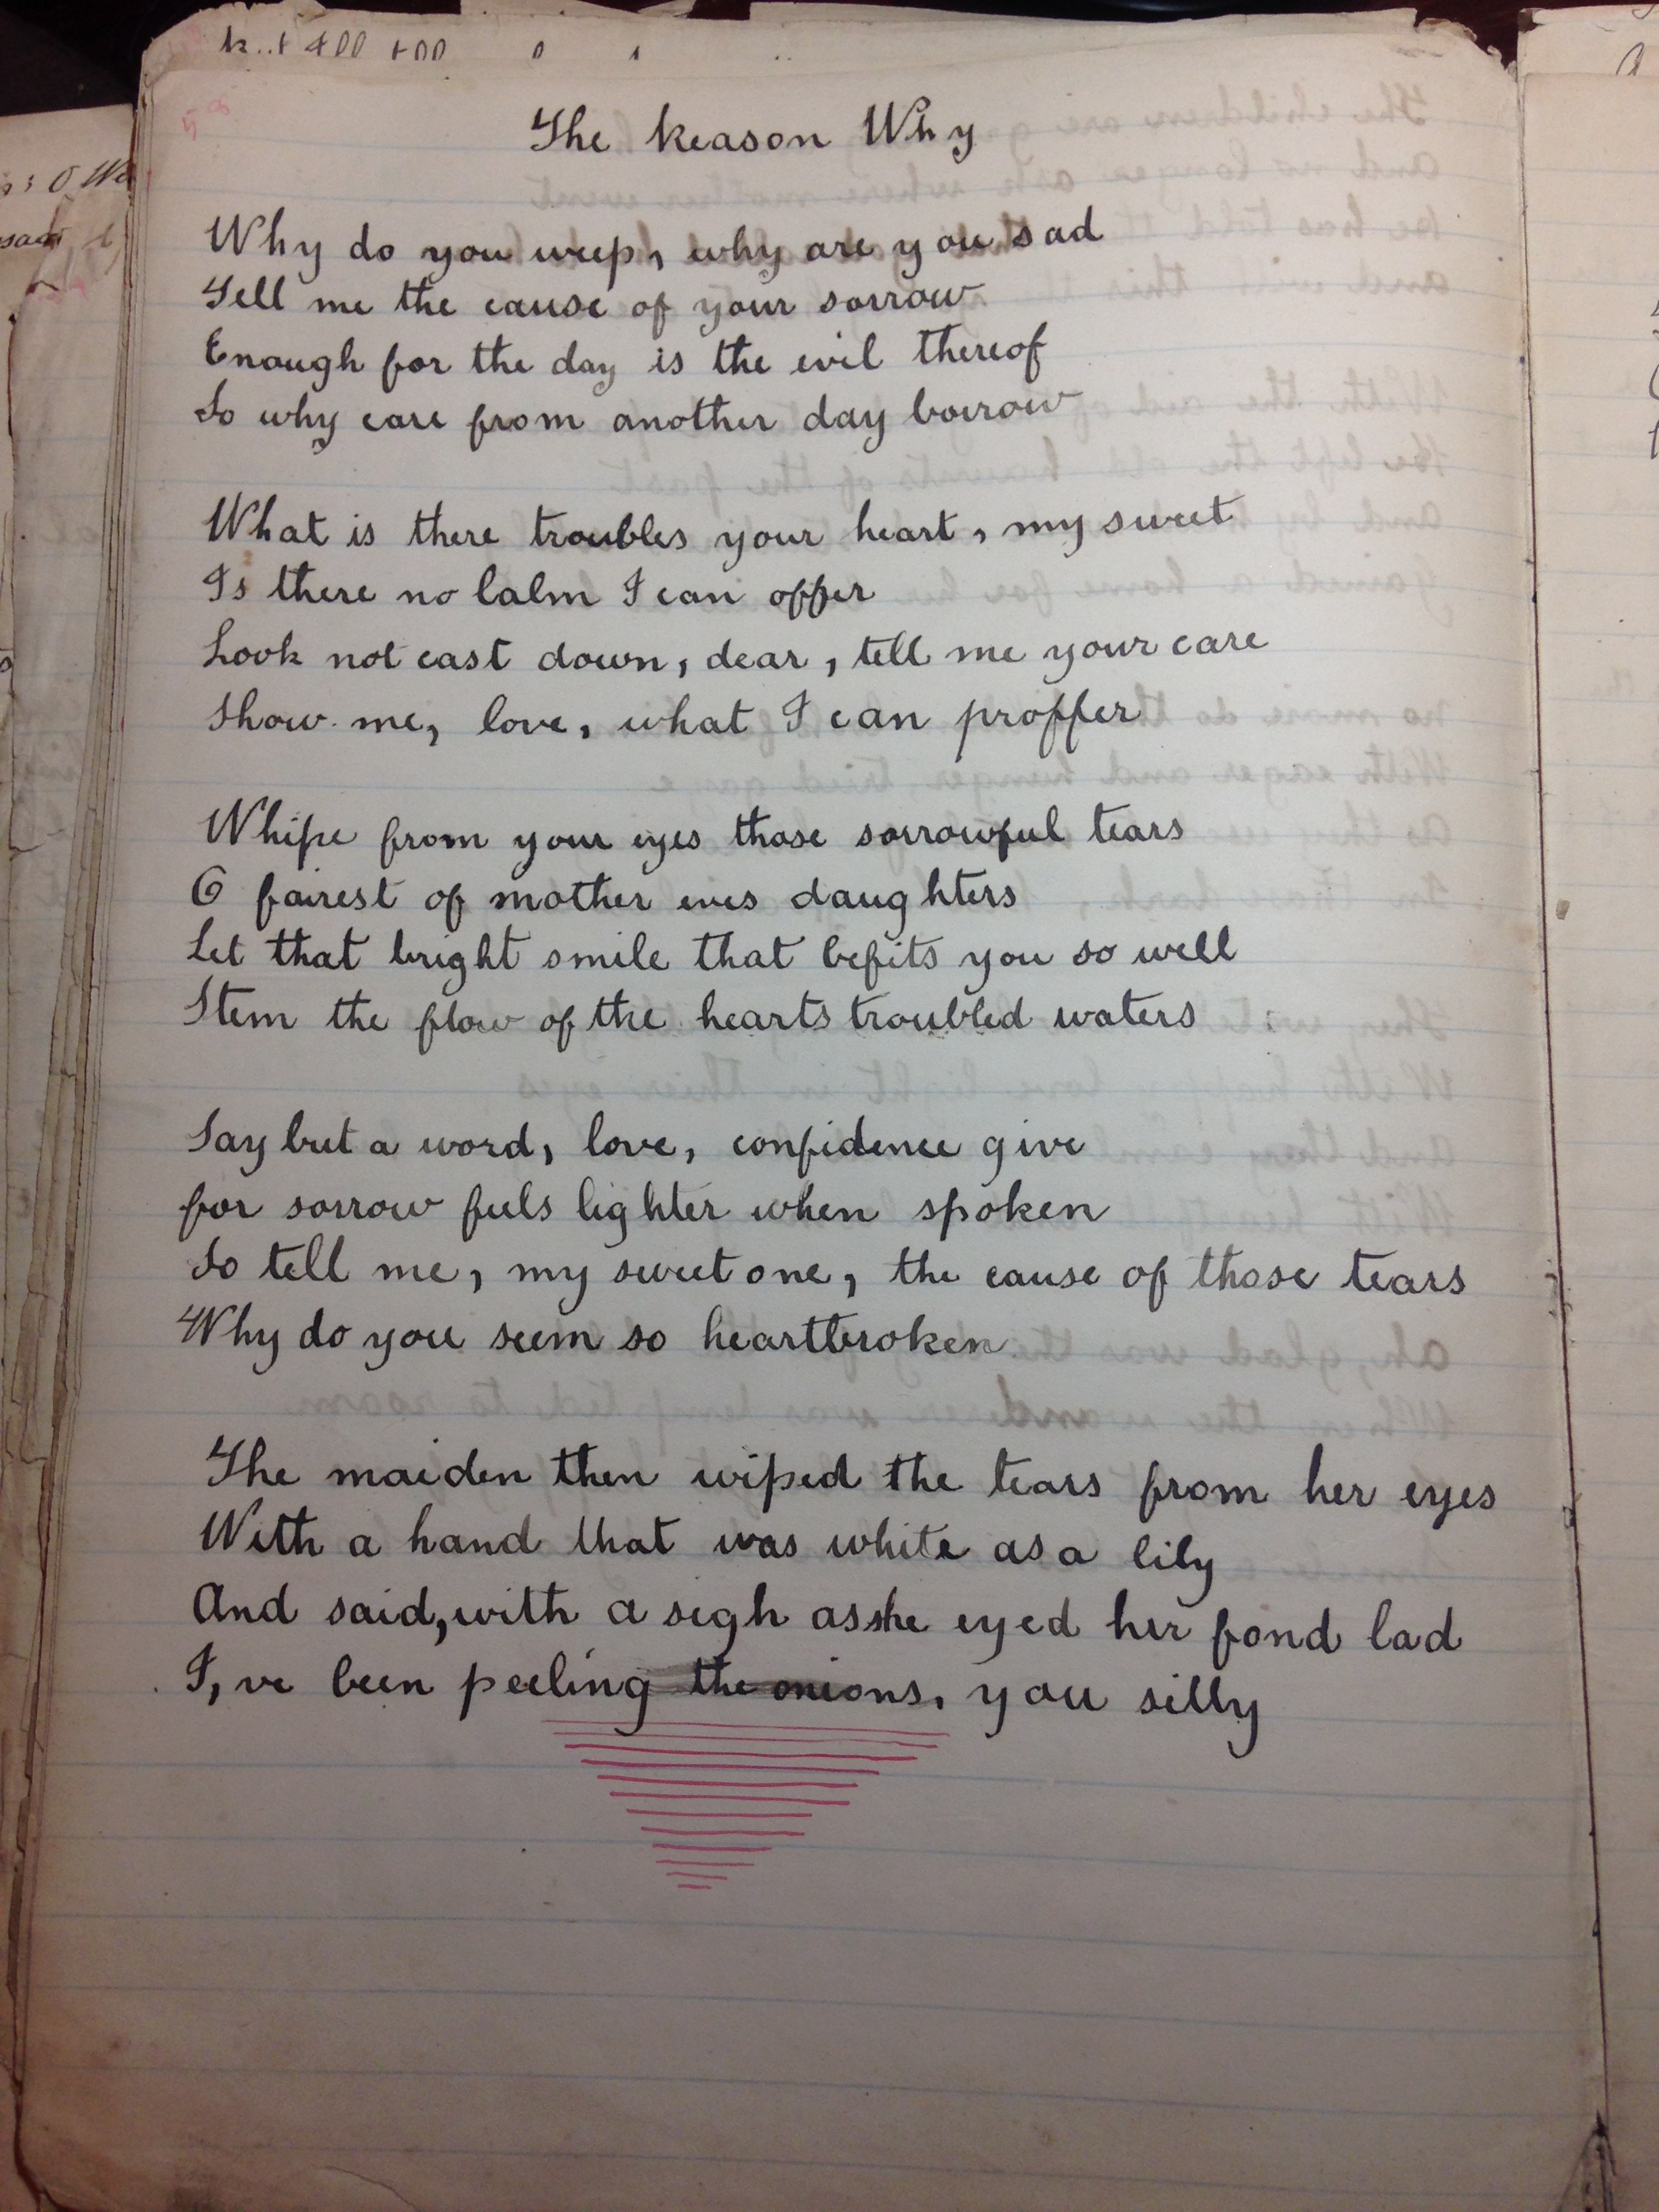 58
The Reason Why
Why do you weep, why are you sad
Tell me the cause of your sorrow
Enough for the day is the evil thereof
So why care from another day borrow
What is there troubles your heart, my sweet
Is there no balm I can offer
Look not cast down, dear, tell me your care
Show me, love, what I can proffer
Whipe from your eyes those sorrowful tears
O fairest of mother eves daughters
Let that bright smile that befits you so well
Stem the flow of the hearts troubled waters
Say but a word, love, confidence give
for sorrow feels lighter when spoken
So tell me, my sweet one, the cause of those tears
Why do you seem so heartbroken
The maiden then wiped the tears from her eyes
With a hand that was white as a lily
And said, with a sigh as she eyed her fond lad
I,ve been peeling the onions, you silly